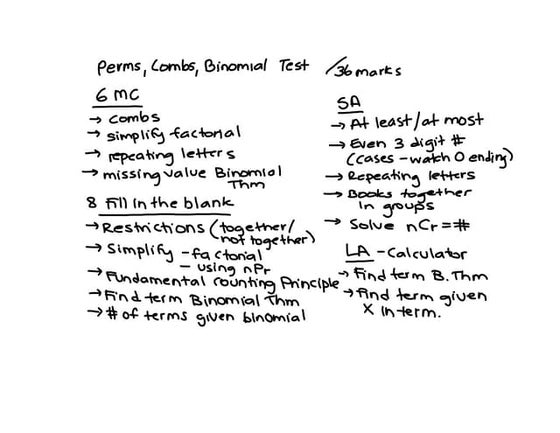 Perms, Combs, Binomial Test /36 marks
6 MC
→ combs
→ simplify factorial
→ repeating letters
→ missing value Binomial
Thm
8 Fill in the blank
→ Restrictions (together/
not together)
→ Simplify - factorial
- using nPr
→ Fundamental counting Principle
→ Find term Binomial Thm
→ # of terms given binomial
SA
→ At least/at most
→ Even 3 digit #
(cases - watch 0 ending)
→ Repeating letters
→ Books together
in groups
→ Solve nCr = #
LA - Calculator
→ Find term B. Thm
→ Find term given
x in term.